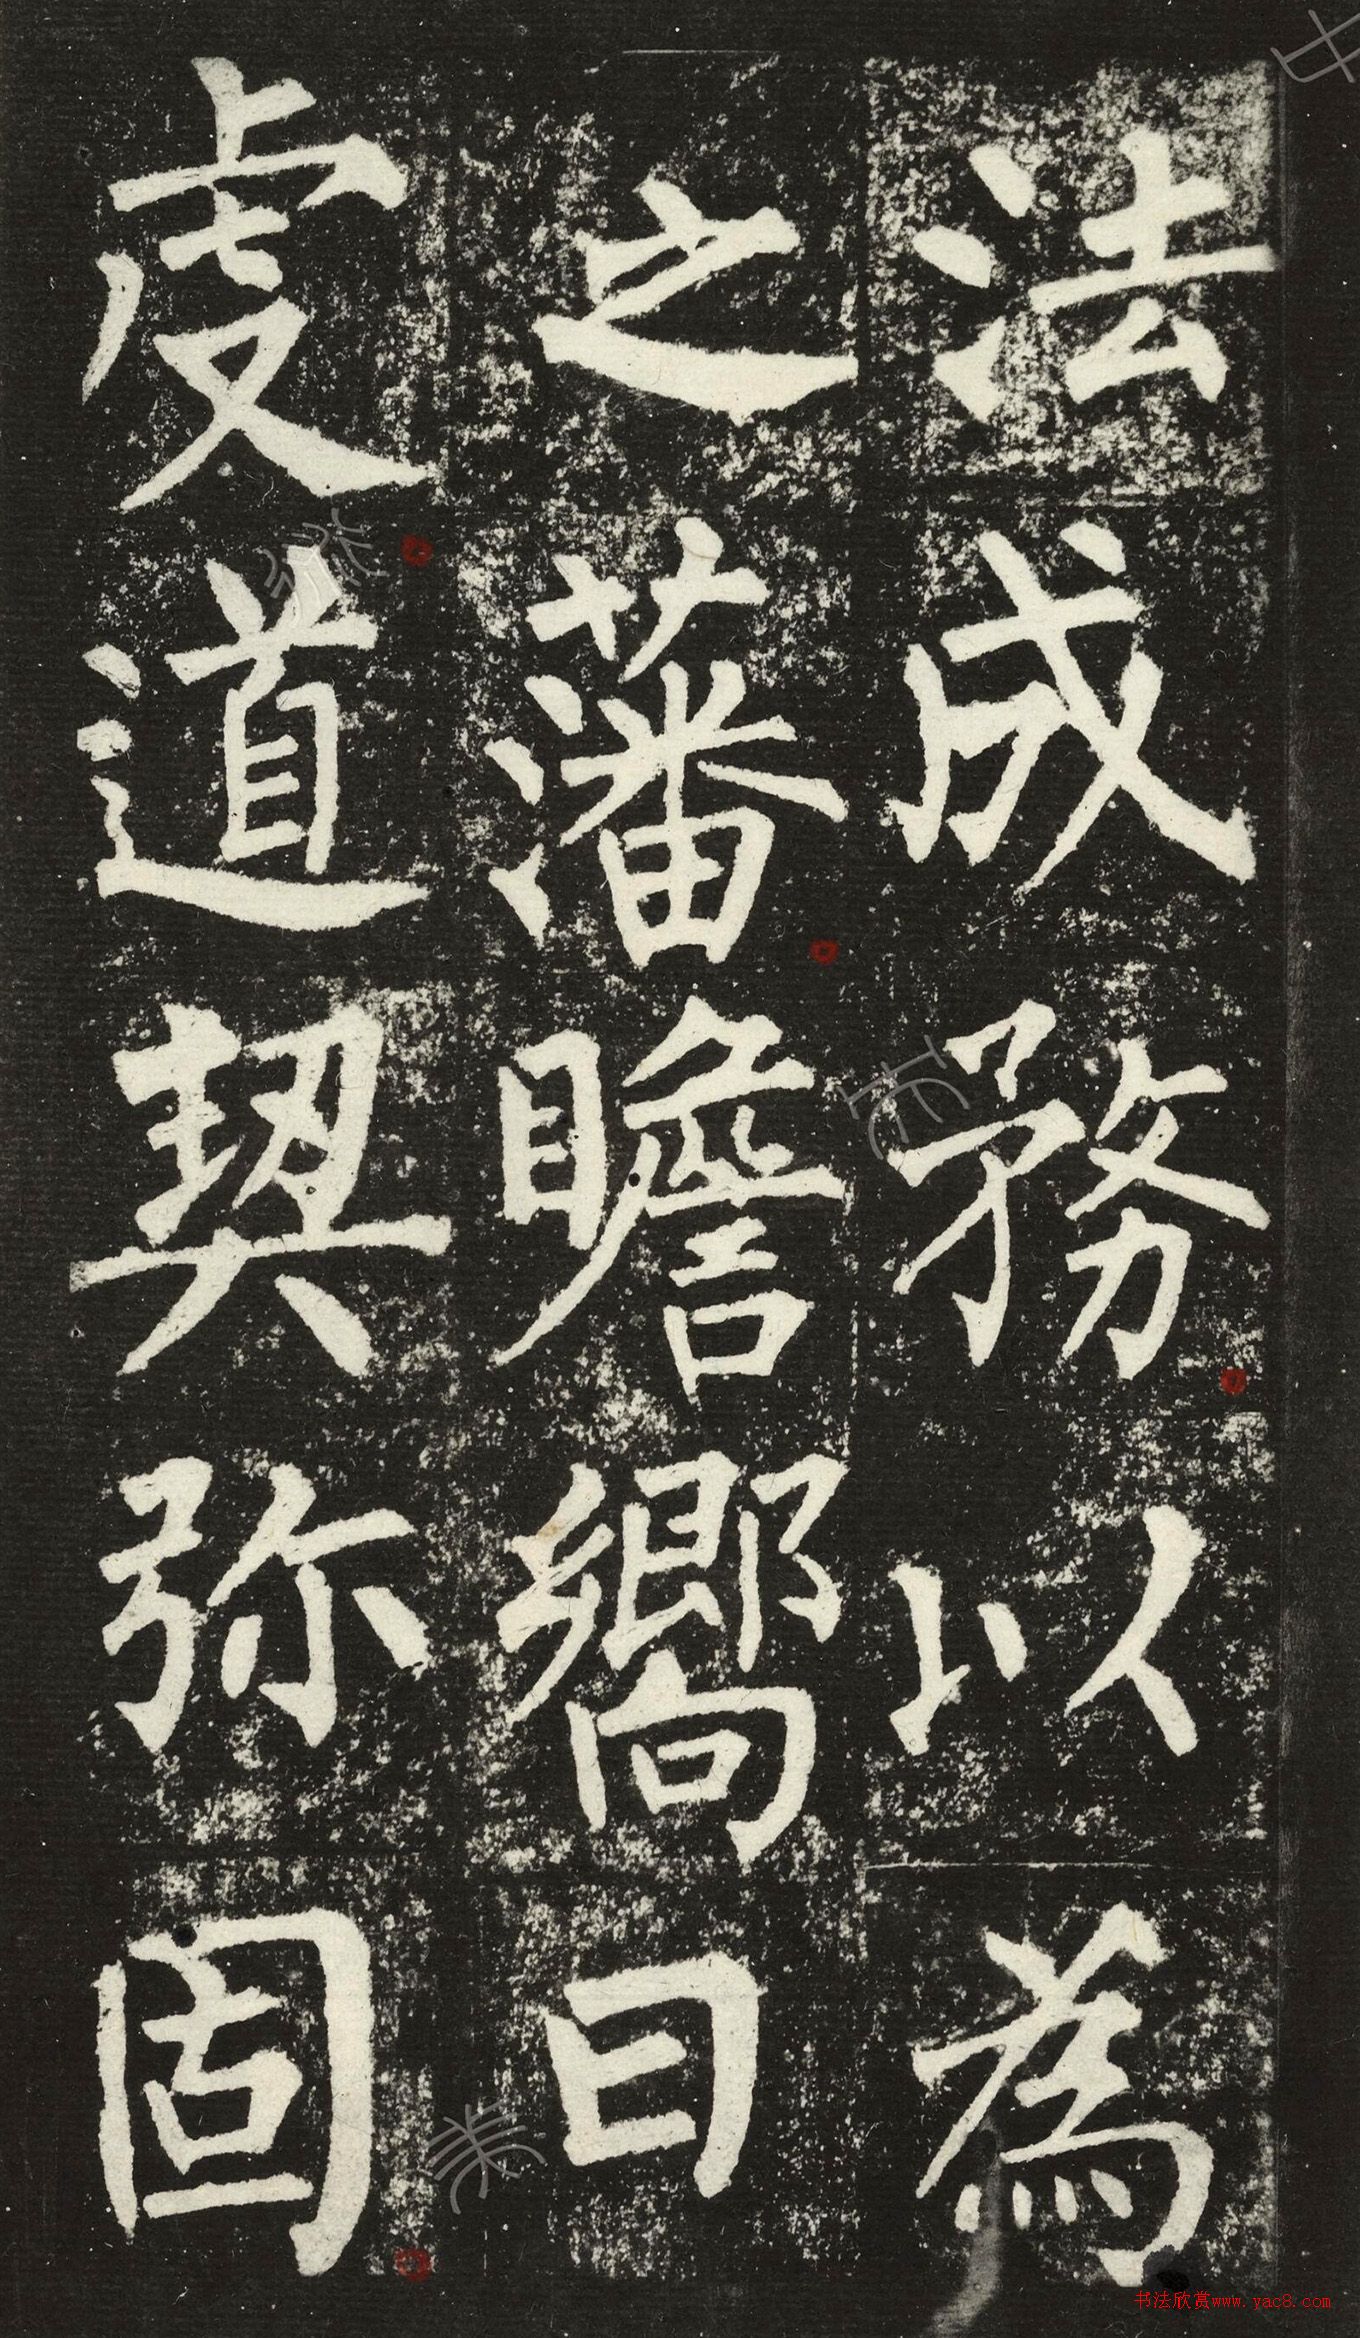 法成務以為
之藩瞻嚮日
虔道契弥固
书法欣赏www.yac8.com